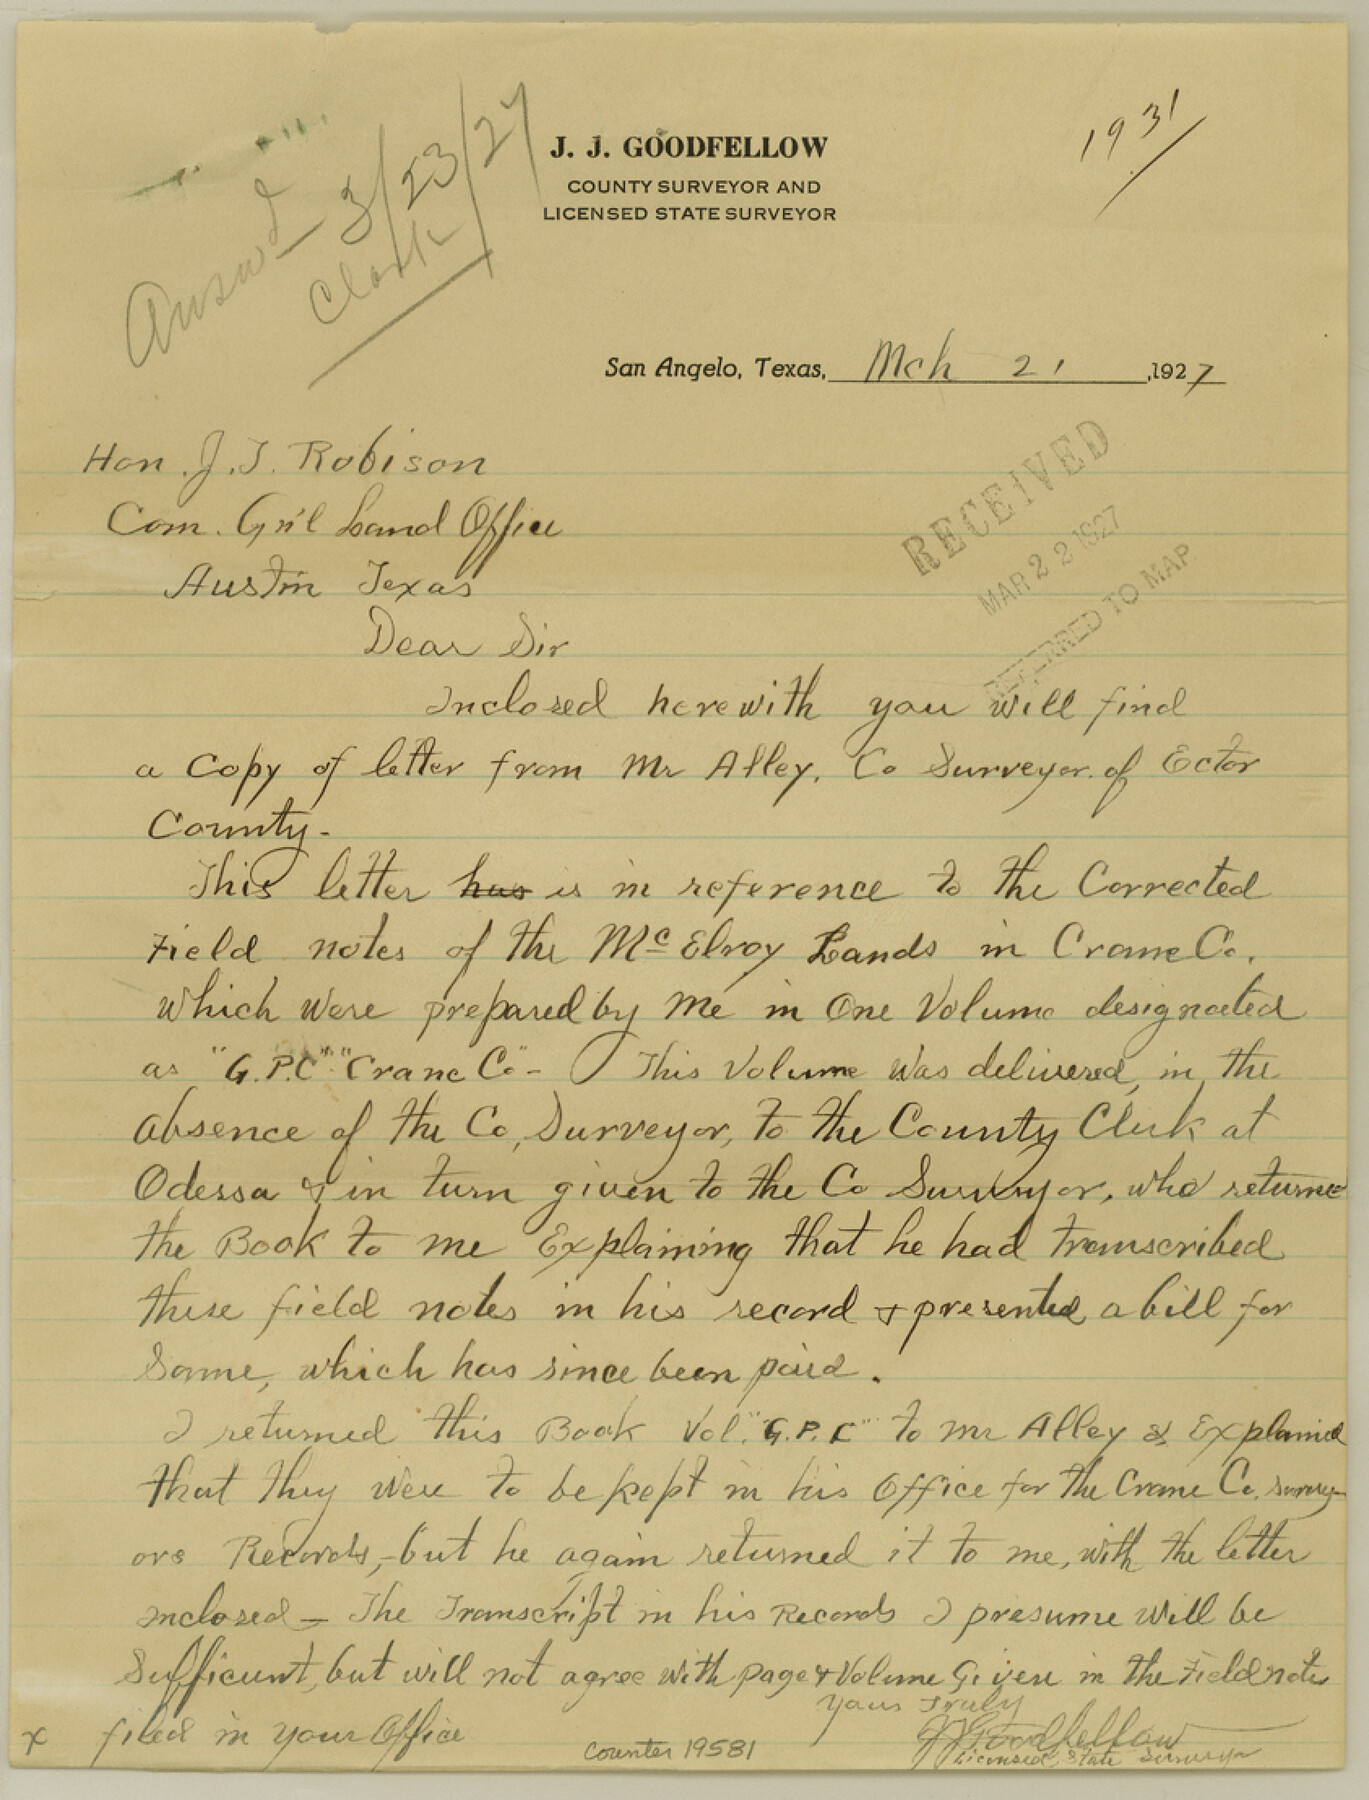 Answd 3/23/27
Clark
1931
J. J. GOODFELLOW
COUNTY SURVEYOR AND
LICENSED STATE SURVEYOR
San Angelo, Texas, Mch 21, 1927
RECEIVED
MAR 22 1927
REFERRED TO MAP
Hon. J. T. Robison
Com. Gn'l Land Office
Austin Texas
Dear Sir
Inclosed herewith you will find
a Copy of letter from Mr Alley, Co Surveyor. of Ector
County-
This letter has is in reference to the Corrected
Field notes of the McElroy Lands in Crane Co.
which were prepared by me in One Volume designated
as "G.P.C" "Crane Co"- This Volume was delivered, in the
absence of the Co, Surveyor, to the County Clerk at
Odessa & in turn given to the Co Surveyor, who returned
the Book to me Explaining that he had transcribed
these field notes in his record & presented a bill for
Same, which has since been paid.
I returned this Book Vol. "G.P.C" to Mr Alley & Explained
that they were to be kept in his Office for the Crane Co. survey-
ors Records,- but he again returned it to me, with the letter
inclosed - The Transcript in his Records I presume will be
Sufficient, but will not agree with page & Volume Given in the Field notes
x filed in your Office
Yours Truly
JJGoodfellow
Licensed State Surveyor
counter 19581